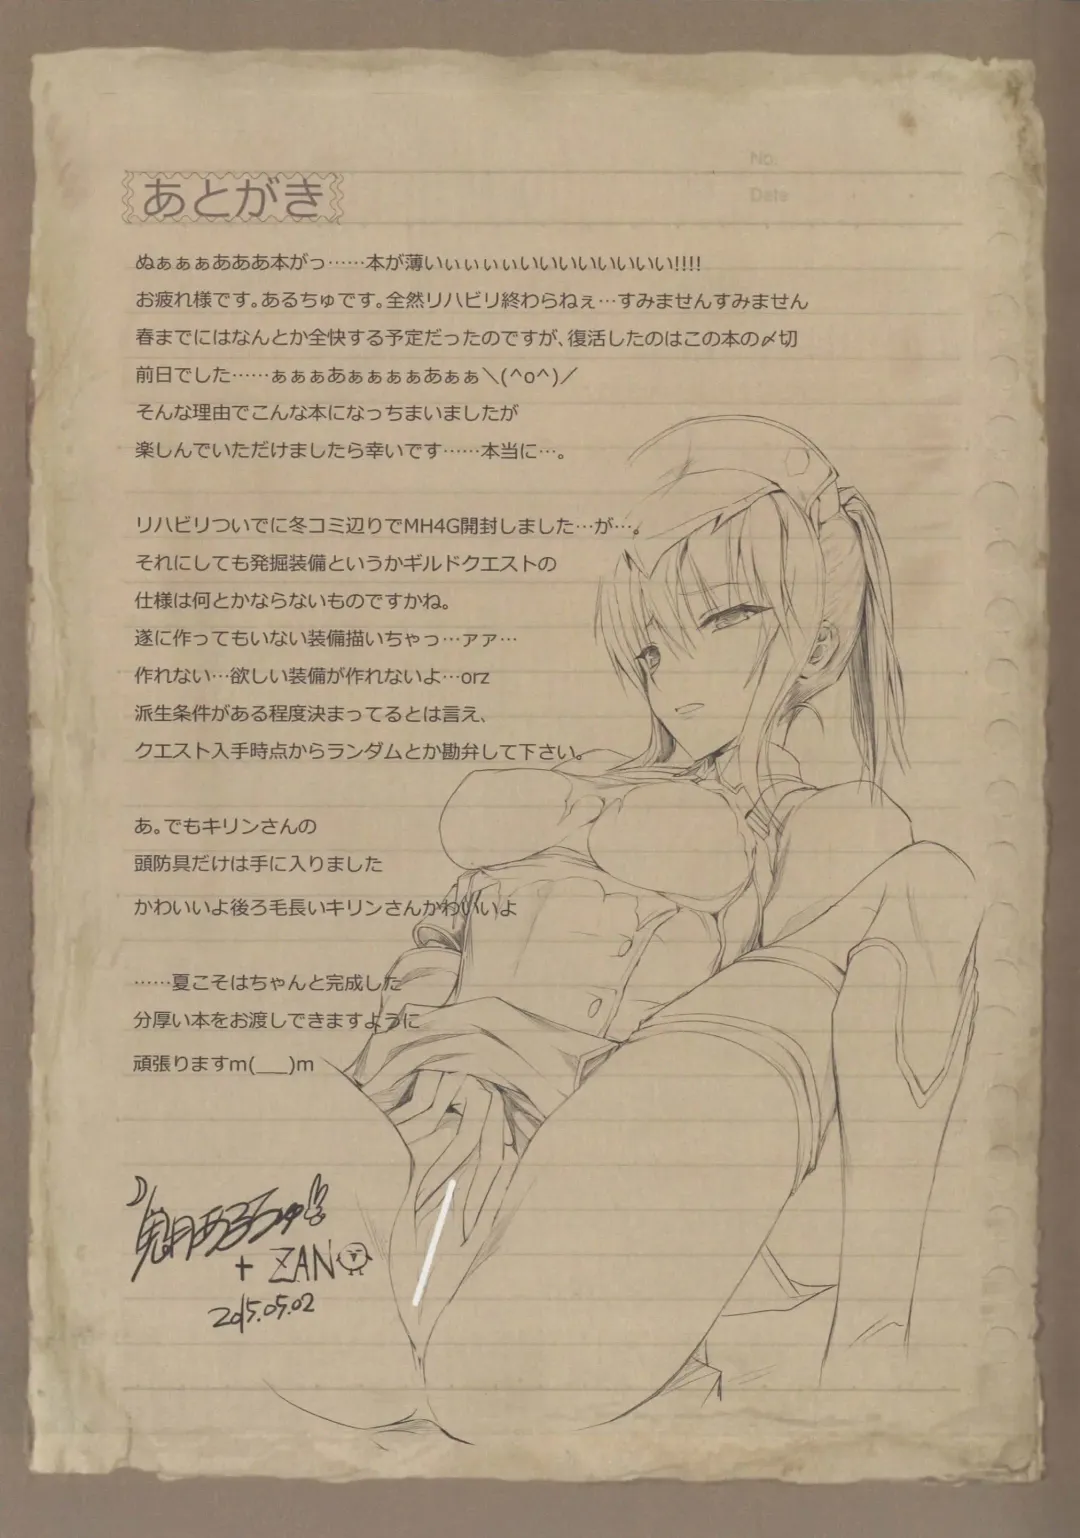 No.
Date
あとがき
ぬぁぁぁあああ本がっ……本が薄いぃぃぃぃいいいいいいいい!!!!
お疲れ様です。あるちゅです。全然リハビリ終わらねぇ…すみませんすみません
春までにはなんとか全快する予定だったのですが、復活したのはこの本の〆切
前日でした……ぁぁぁあぁぁぁぁあぁぁ＼(^o^)／
そんな理由でこんな本になっちまいましたが
楽しんでいただけましたら幸いです……本当に…。
リハビリついでに冬コミ辺りでMH4G開封しました…が…。
それにしても発掘装備というかギルドクエストの
仕様は何とかならないものですかね。
遂に作ってもいない装備描いちゃっ…ァァ…
作れない…欲しい装備が作れないよ…orz
派生条件がある程度決まってるとは言え、
クエスト入手時点からランダムとか勘弁して下さい。
あ。でもキリンさんの
頭防具だけは手に入りました
かわいいよ後ろ毛長いキリンさんかわいいよ
……夏こそはちゃんと完成した
分厚い本をお渡しできますように
頑張りますm(___)m
あるちゅ
+ ZAN
2015.05.02